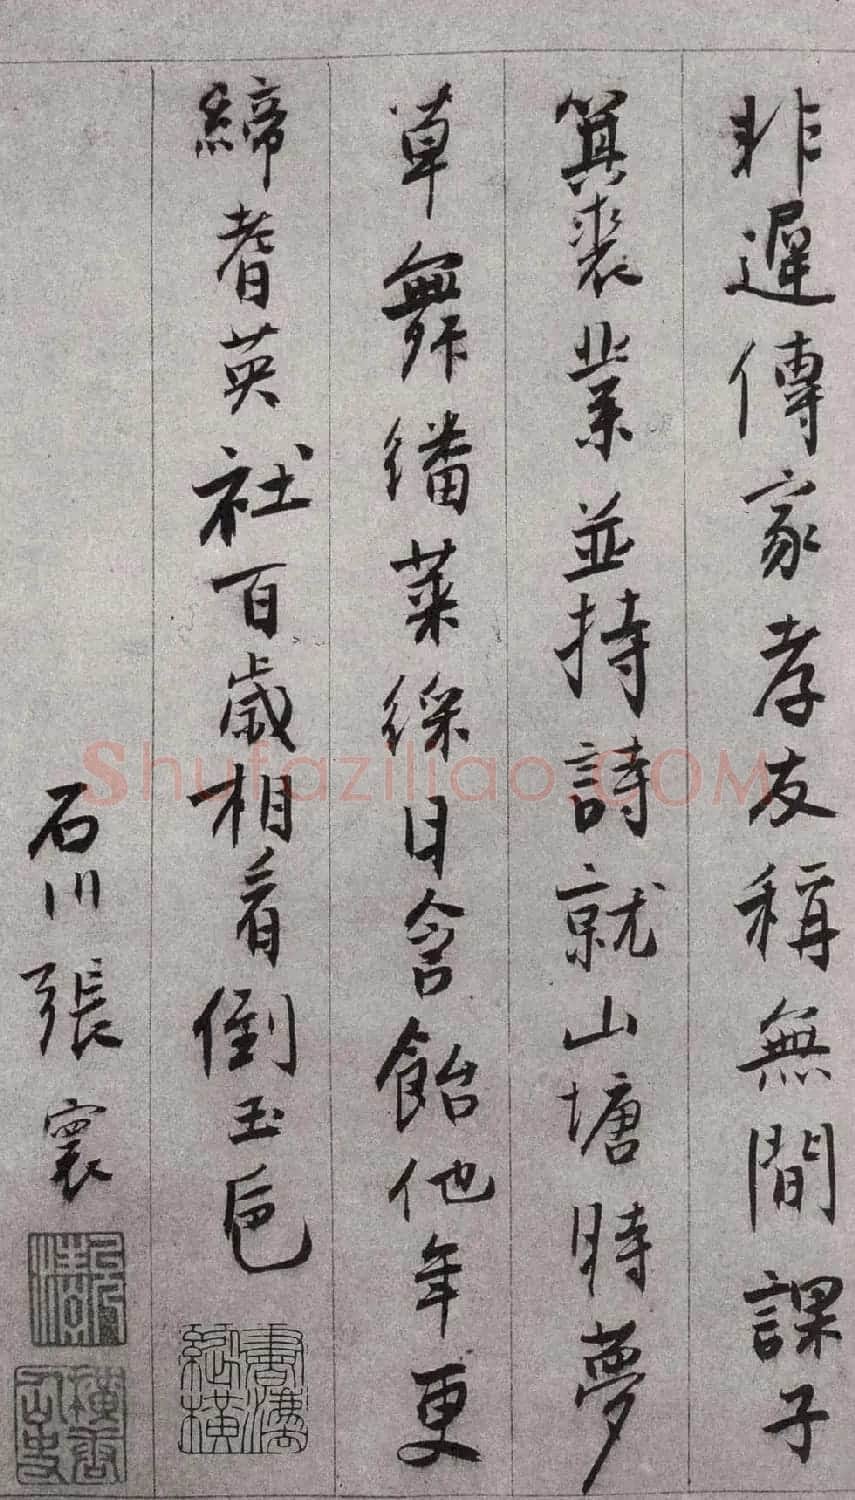 非遲傳家孝友稱無間課子
箕裘業並持詩就山塘時夢
草舞繙萊綵日含飴他年更
締耆英社百歲相看倒玉巵
石川張寰
Shufaziliao.COM